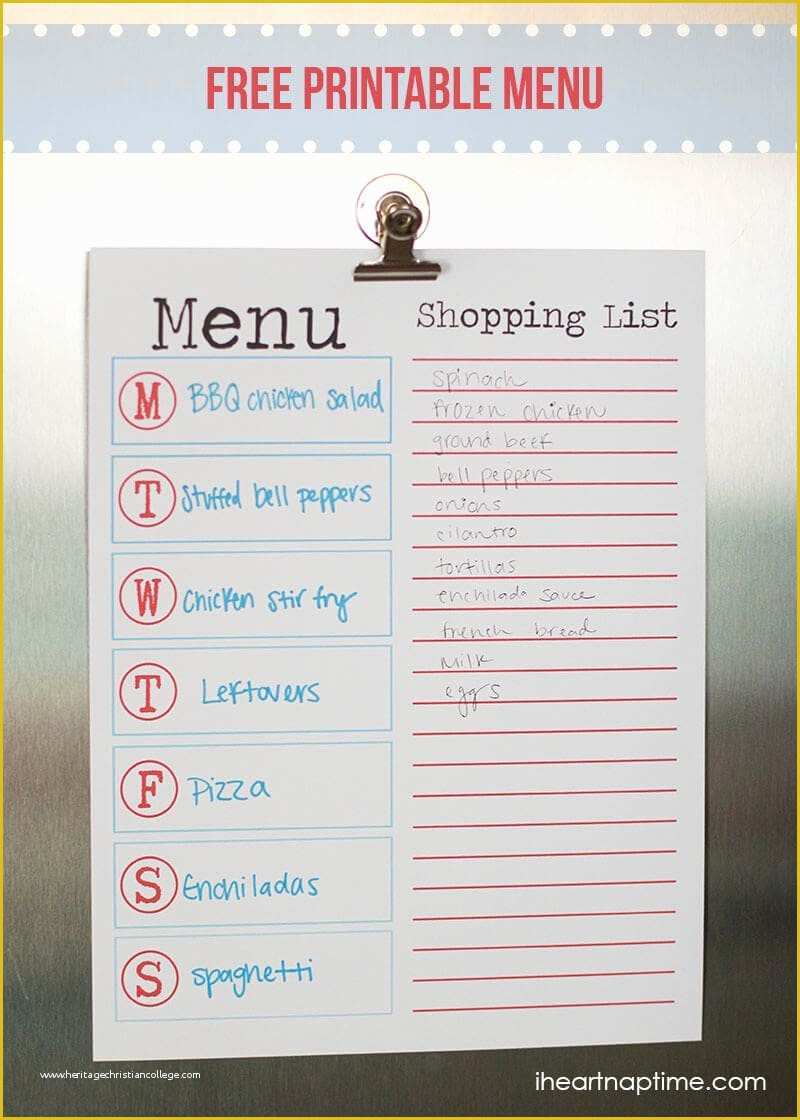 FREE PRINTABLE MENU
Menu
M BBQ chicken salad
T Stuffed bell peppers
W Chicken stir fry
T Leftovers
F Pizza
S Enchiladas
S spaghetti
Shopping List
spinach
frozen chicken
ground beef
bell peppers
onions
cilantro
tortillas
enchilada sauce
french bread
Milk
eggs
www.heritagechristiancollege.com
iheartnaptime.com